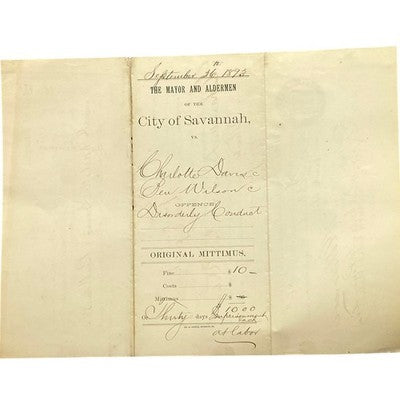 September 26th 1893
THE MAYOR AND ALDERMEN
OF THE
City of Savannah,
VS.
Charlotte Davis c
Wilson c
OFFENCE
Disorderly Conduct
ORIGINAL MITTIMUS.
Fine $10 —
Costs $
Mittimus $
$10 00
or Thirty days Imprisonment
each
at labor